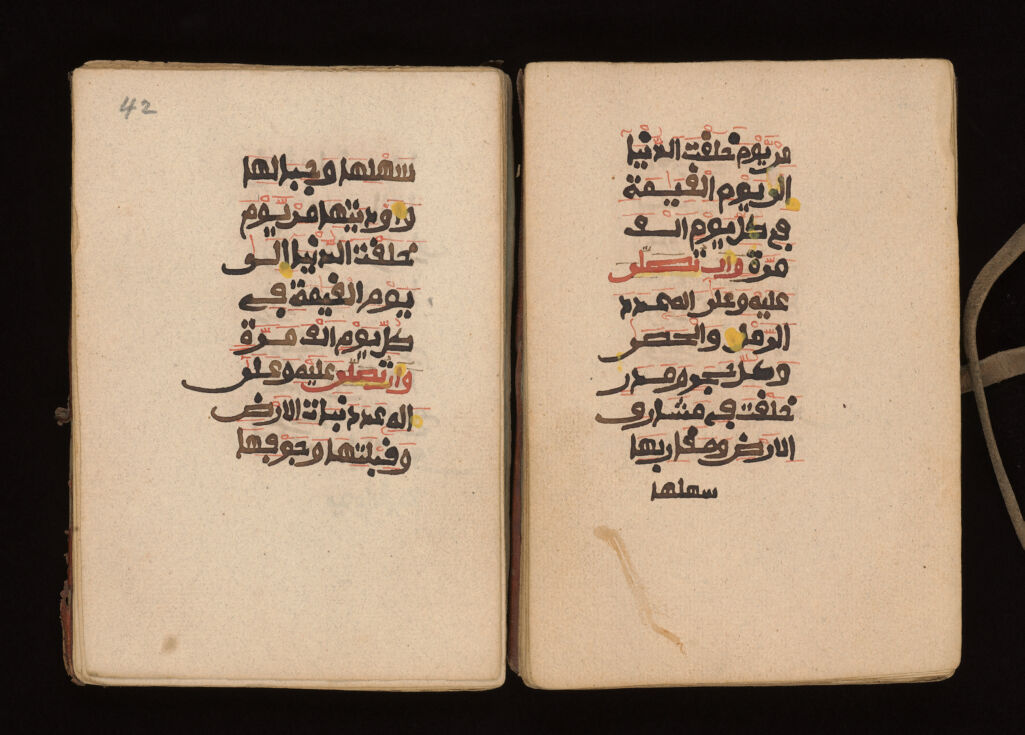 مِن يَّوْمِ خلقت الدّنيا
الى يوم القيٰمة
في كلّ يوم الف
مرّة وان تصلّى
عليه وعلى اله عدد
الرمل والحصى
وكلّ حجر ومدر
خلقت في مشارق
الارض ومغاربها
سهلها
42
سهلها وجبالها
واوديتها من يّوم
خلقت الدّنيا الى
يوم القيٰمة في
كلّ يوم الف مرّة
وان تصلّى عليه وعلى
اله عدد نبات الارض
وقبلتها وجوفها